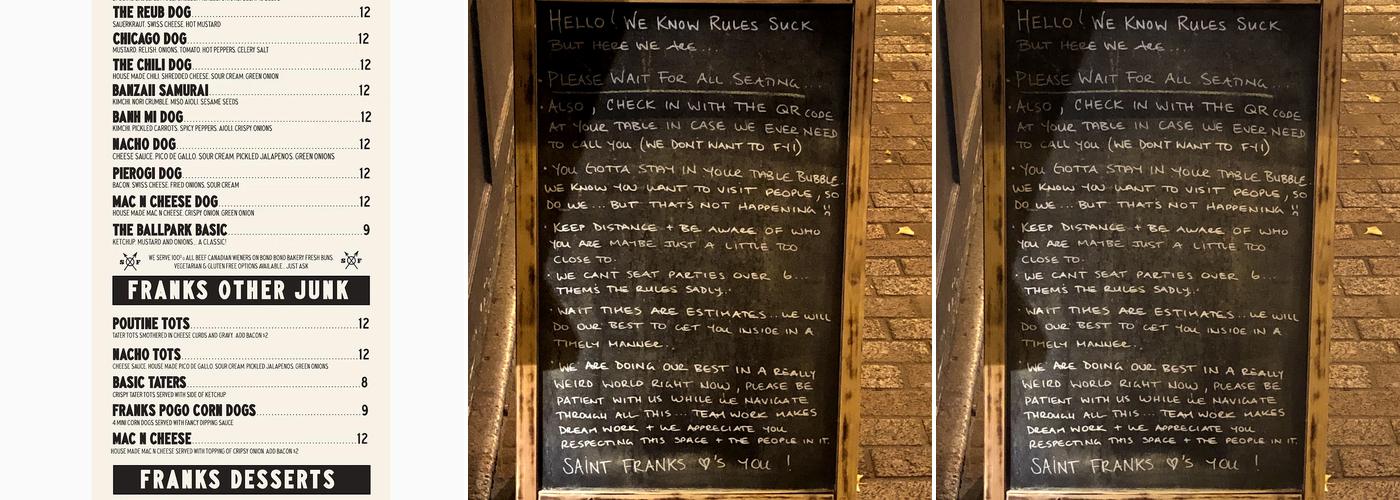 THE REUB DOG 12
SAUERKRAUT, SWISS CHEESE, HOT MUSTARD
CHICAGO DOG 12
MUSTARD, RELISH, ONIONS, TOMATO, HOT PEPPERS, CELERY SALT
THE CHILI DOG 12
HOUSE MADE CHILI, SHREDDED CHEESE, SOUR CREAM, GREEN ONION
BANZAII SAMURAI 12
KIMCHI, NORI CRUMBLE, MISO AIOLI, SESAME SEEDS
BANH MI DOG 12
KIMCHI, PICKLED CARROTS, SPICY PEPPERS, AIOLI, CRISPY ONIONS
NACHO DOG 12
CHEESE SAUCE, PICO DE GALLO, SOUR CREAM, PICKLED JALAPENOS, GREEN ONIONS
PIEROGI DOG 12
BACON, SWISS CHEESE, FRIED ONIONS, SOUR CREAM
MAC N CHEESE DOG 12
HOUSE MADE MAC N CHEESE, CRISPY ONION, GREEN ONION
THE BALLPARK BASIC 9
KETCHUP, MUSTARD AND ONIONS... A CLASSIC!
S F WE SERVE 100% ALL BEEF CANADIAN WIENERS ON BOND BOND BAKERY FRESH BUNS. S F
VEGETARIAN & GLUTEN FREE OPTIONS AVAILABLE... JUST ASK
FRANKS OTHER JUNK
POUTINE TOTS 12
TATER TOTS SMOTHERED IN CHEESE CURDS AND GRAVY. ADD BACON $2
NACHO TOTS 12
CHEESE SAUCE, HOUSE MADE PICO DE GALLO, SOUR CREAM, PICKLED JALAPENOS, GREEN ONIONS
BASIC TATERS 8
CRISPY TATER TOTS SERVED WITH SIDE OF KETCHUP
FRANKS POGO CORN DOGS 9
4 MINI CORN DOGS SERVED WITH FANCY DIPPING SAUCE
MAC N CHEESE 12
HOUSE MADE MAC N CHEESE SERVED WITH TOPPING OF CRIPSY ONION. ADD BACON $2
FRANKS DESSERTS
HELLO! WE KNOW RULES SUCK
BUT HERE WE ARE...
· PLEASE WAIT FOR ALL SEATING...
· ALSO, CHECK IN WITH THE QR CODE
AT YOUR TABLE IN CASE WE EVER NEED
TO CALL YOU (WE DONT WANT TO FYI)
· YOU GOTTA STAY IN YOUR TABLE BUBBLE.
WE KNOW YOU WANT TO VISIT PEOPLE, SO
DO WE... BUT THAT'S NOT HAPPENING
· KEEP DISTANCE + BE AWARE OF WHO
YOU ARE MAYBE JUST A LITTLE TOO
CLOSE TO.
· WE CANT SEAT PARTIES OVER 6...
THEM'S THE RULES SADLY..
· WAIT TIMES ARE ESTIMATES... WE WILL
DO OUR BEST TO GET YOU INSIDE IN A
TIMELY MANNER..
· WE ARE DOING OUR BEST IN A REALLY
WEIRD WORLD RIGHT NOW, PLEASE BE
PATIENT WITH US WHILE WE NAVIGATE
THROUGH ALL THIS... TEAM WORK MAKES
DREAM WORK + WE APPRECIATE YOU
RESPECTING THIS SPACE + THE PEOPLE IN IT.
SAINT FRANKS ♡'S YOU !
HELLO! WE KNOW RULES SUCK
BUT HERE WE ARE...
· PLEASE WAIT FOR ALL SEATING...
· ALSO, CHECK IN WITH THE QR CODE
AT YOUR TABLE IN CASE WE EVER NEED
TO CALL YOU (WE DONT WANT TO FYI)
· YOU GOTTA STAY IN YOUR TABLE BUBBLE.
WE KNOW YOU WANT TO VISIT PEOPLE, SO
DO WE... BUT THAT'S NOT HAPPENING
· KEEP DISTANCE + BE AWARE OF WHO
YOU ARE MAYBE JUST A LITTLE TOO
CLOSE TO.
· WE CANT SEAT PARTIES OVER 6...
THEM'S THE RULES SADLY..
· WAIT TIMES ARE ESTIMATES... WE WILL
DO OUR BEST TO GET YOU INSIDE IN A
TIMELY MANNER..
· WE ARE DOING OUR BEST IN A REALLY
WEIRD WORLD RIGHT NOW, PLEASE BE
PATIENT WITH US WHILE WE NAVIGATE
THROUGH ALL THIS... TEAM WORK MAKES
DREAM WORK + WE APPRECIATE YOU
RESPECTING THIS SPACE + THE PEOPLE IN IT.
SAINT FRANKS ♡'S YOU !